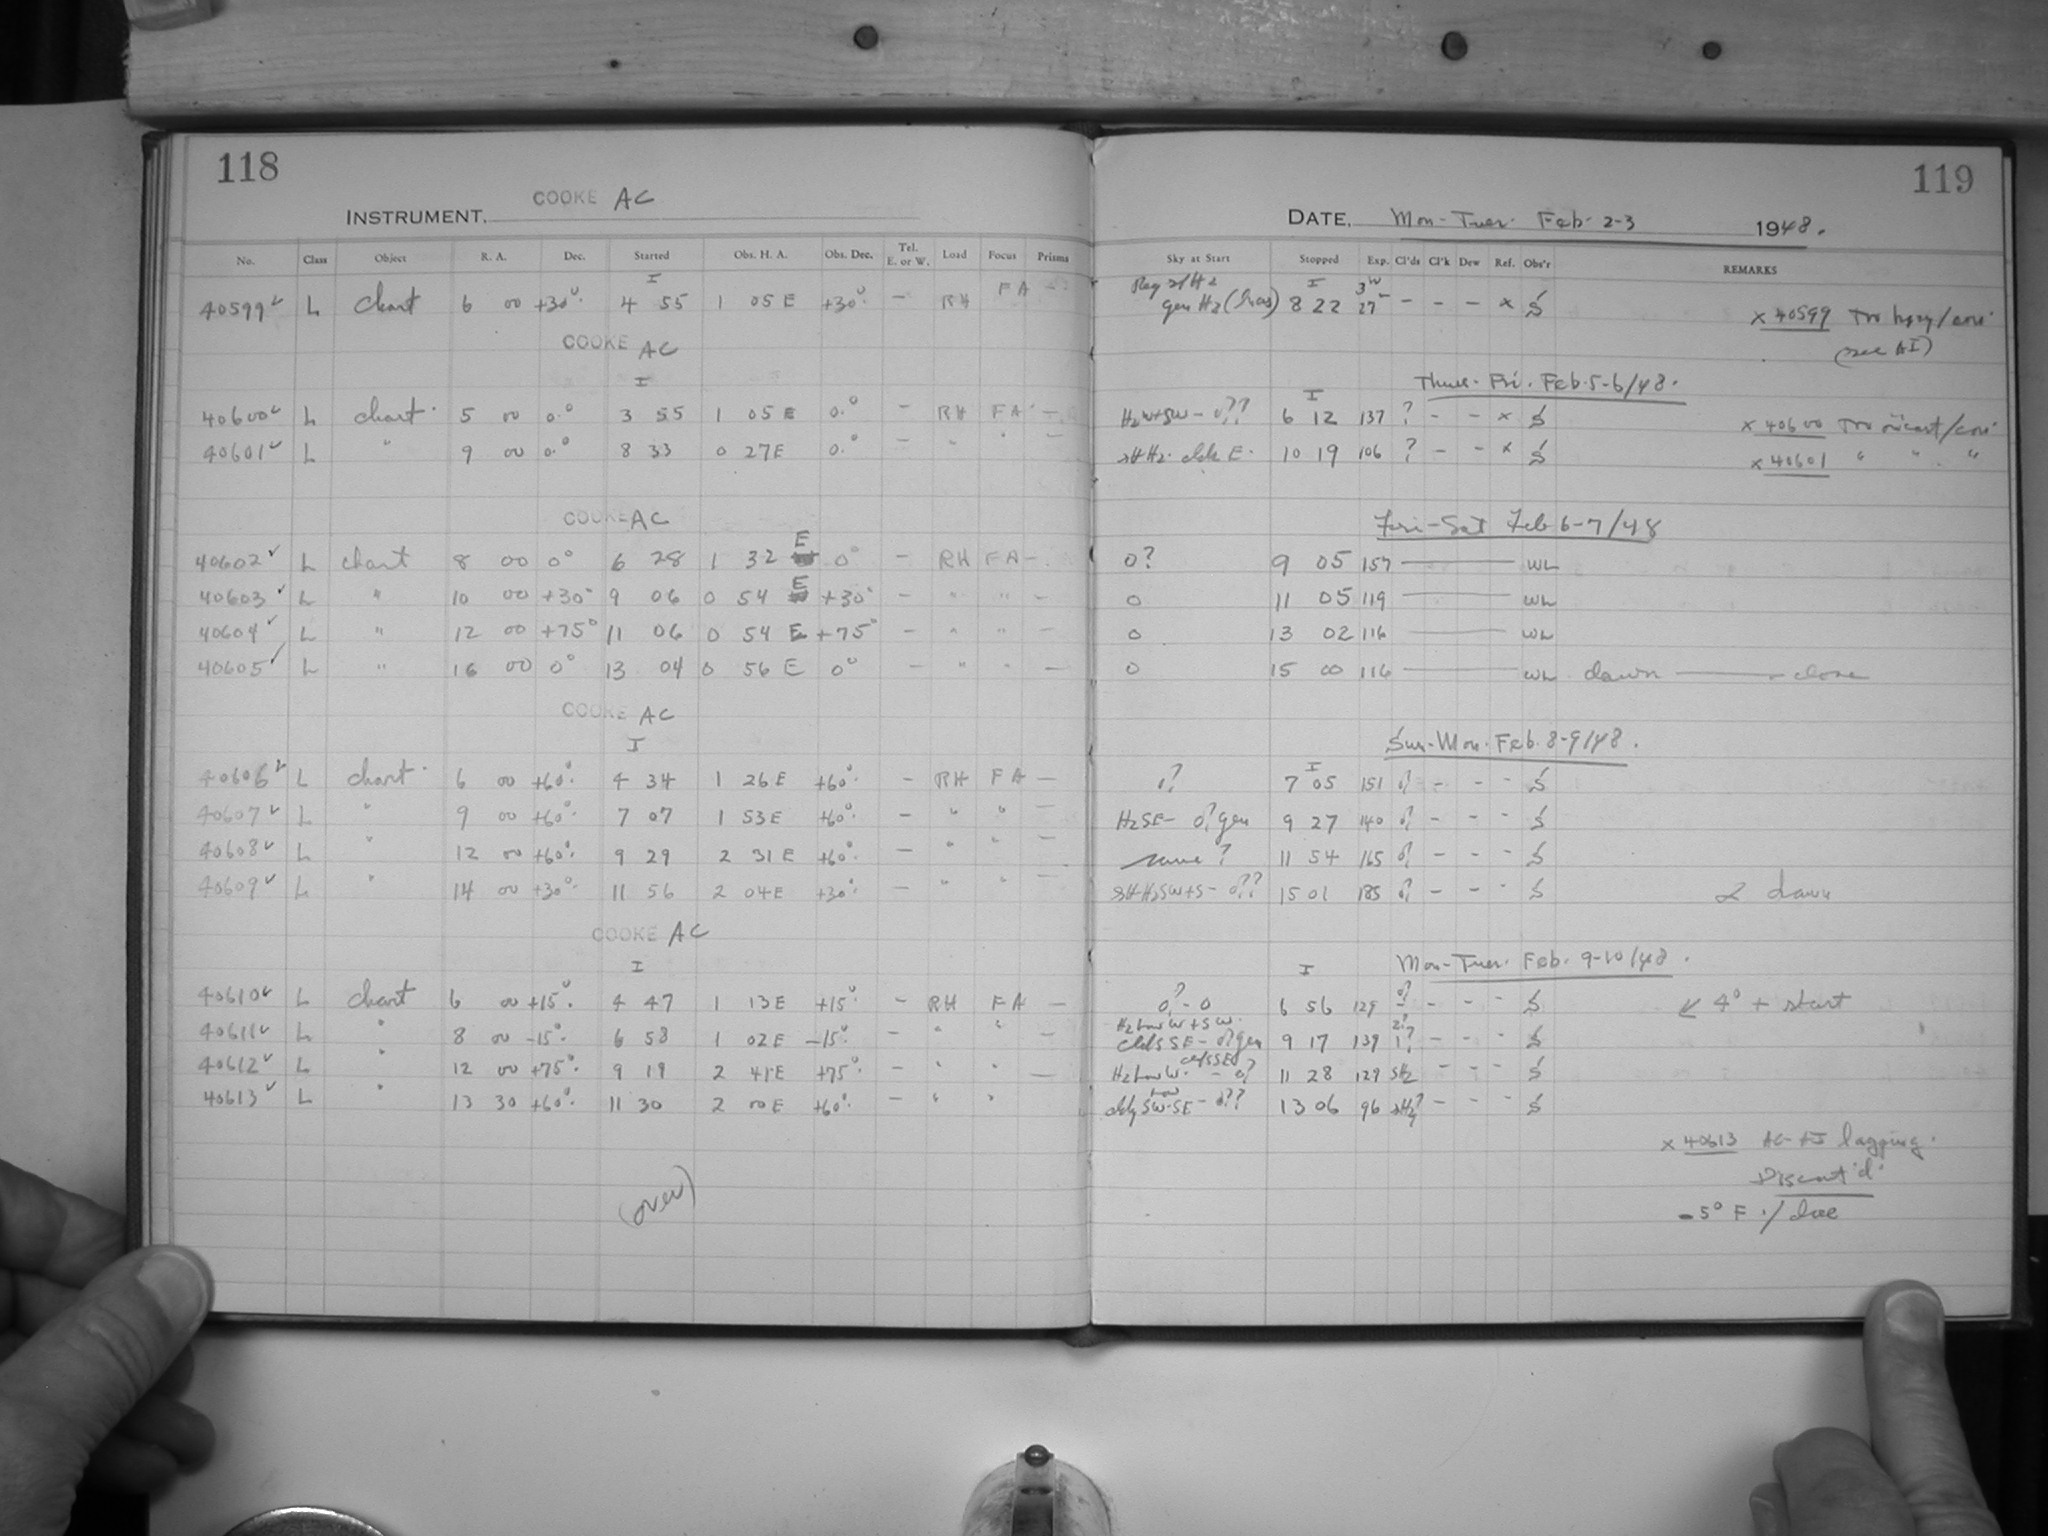 118
COOKE AC
INSTRUMENT.
No. Class Object R. A. Dec. Started Obs. H. A. Obs. Dec. Tel. E. or W. Load Focus Prisms
I
40599 L Chart 6 00 +30° 4 55 1 05 E +30° - RH FA -
COOKE AC
I
40600 L chart 5 00 0° 3 55 1 05 E 0° - RH FA -
40601 L " 9 00 0° 8 33 0 27 E 0° - " " -
COOKE AC
40602 L chart 8 00 0° 6 28 1 32 E 0° - RH FA -
40603 L " 10 00 +30° 9 06 0 54 E +30° - " " -
40604 L " 12 00 +75° 11 06 0 54 E +75° - " " -
40605 L " 16 00 0° 13 04 0 56 E 0° - " " -
COOKE AC
I
40606 L chart 6 00 +60° 4 34 1 26 E +60° - RH FA -
40607 L " 9 00 +60° 7 07 1 53 E +60° - " " -
40608 L " 12 00 +60° 9 29 2 31 E +60° - " " -
40609 L " 14 00 +30° 11 56 2 04 E +30° - " " -
COOKE AC
I
40610 L Chart 6 00 +15° 4 47 1 13 E +15° - RH FA -
40611 L " 8 00 -15° 6 58 1 02 E -15° - " " -
40612 L " 12 00 +75° 9 19 2 41 E +75° - " " -
40613 L " 13 30 +60° 11 30 2 00 E +60° - " "
(over)
119
DATE. Mon-Tues. Feb. 2-3 1948.
Sky at Start Stopped Exp. Cl'ds Cl'k Dew Ref. Obs'r REMARKS
I
gen H2 8 22 27 - - - x S x 40599
(see AI)
Thurs-Fri. Feb. 5-6/48.
I
H2 W+SW - 0?? 6 12 137 ? - - x S x 40600
10 19 106 ? - - x S x 40601 " " "
Fri-Sat Feb 6-7/48
0? 9 05 157 WL
0 11 05 119 WL
0 13 02 116 WL
0 15 00 116 WL dawn close
Sun-Mon. Feb. 8-9/48.
I
0? 7 05 151 0? - - - S
H2 SE - 0? gen 9 27 140 0? - - - S
same? 11 54 165 0? - - - S
15 01 185 0? - - - S dawn
Mon-Tues. Feb. 9-10/48.
I
0? - 0 6 56 129 0? - - - S 4° + start
H2 low W + SW.
clds SE - 0? gen 9 17 139 - - - S
H2 low W. - 0? 11 28 129 - - - S
SW-SE - 0?? 13 06 96 - - - S
x 40613 AC + AI lagging.
Discont'd.
-5° F